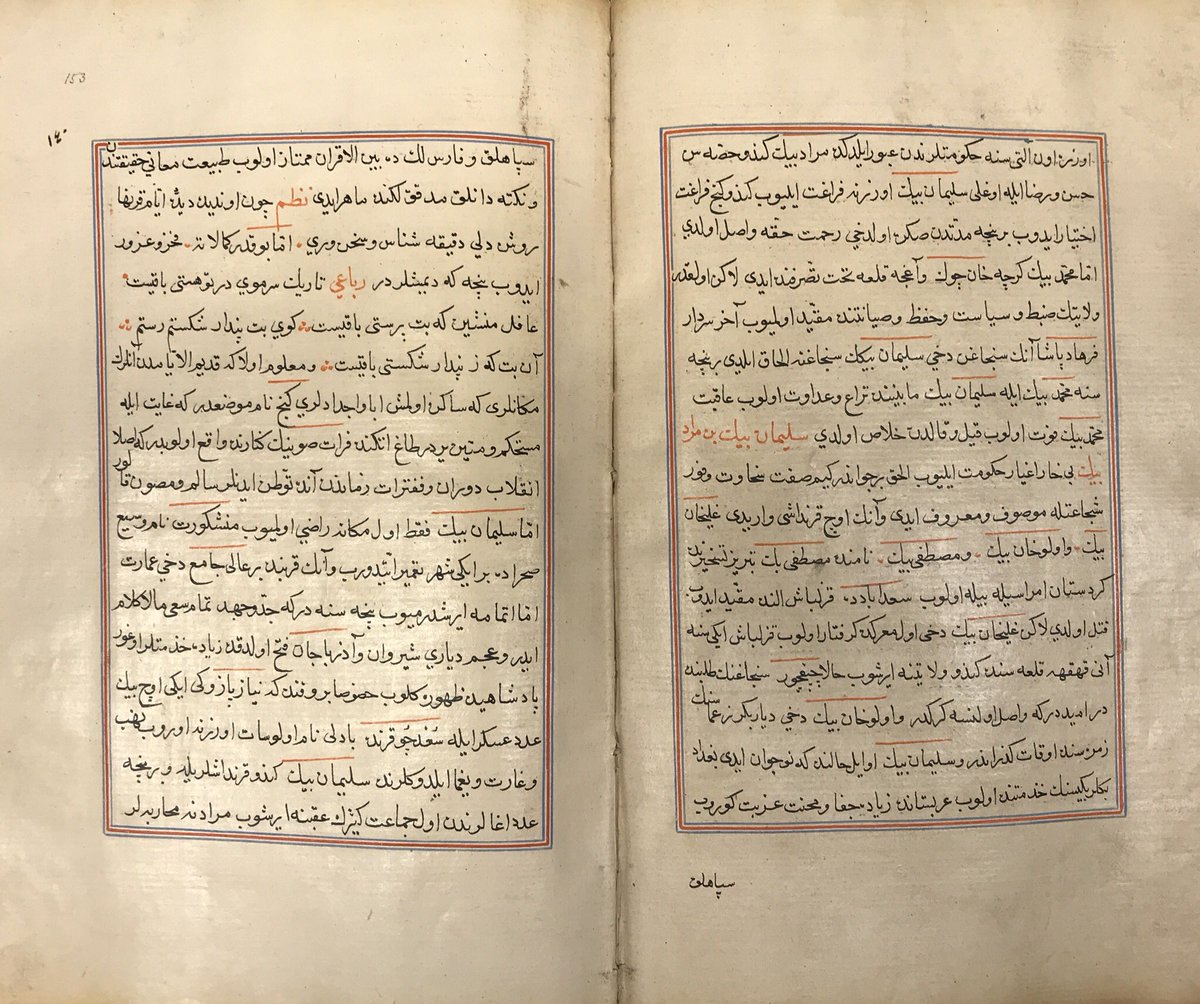 اوزره اون التی سنه حکومتلرندن عبور ایلدکده مراد بیك کندو حضه س
حسن و رضا ایله اوغلی سلیمان بیك اوزرنه فراغت ایلیوب کندو کنج فراغت
اختیار ایدوب برنچه مدتدن صکره اولدخي رحمت حقه واصل اولدي
امّا محمد بیك کرچه خان چوك وآغچه قلعه تحت تصرفنده ایدی لاکن اولقدر
ولایتك ضبط و سیاست و حفظ و صیانتنده مقید اولمیوب آخر سردار
فرهاد پاشا آنك سنجاغن دخي سلیمان بیکك سنجاغنه الحاق ایلدي برنچه
سنه محمد بیك ایله سلیمان بیك مابیننده نزاع و عداوت اولوب عاقبت
محمد بیك فوت اولوب قیل و قالدن خلاص اولدي سلیمان بیك بن مراد
بیك بی خار اغیار حکومت ایلیوب الحق بر جواندر کیم صفت سخاوت و وفور
شجاعتله موصوف و معروف ایدی و آنك اوچ قرنداشی وار یدی غلیخان
بیك و اولوخان بیك و مصطفی بیك نامنده مصطفی بك تبریز تسخیرنده
کردستان امراسیله بیله اولوب سعد آبادده قزلباش النده مقید ایدوب
قتل اولدي لاکن غلیخان بیك دخی اول معرکه ده کرفتار اولوب قزلباش ایکی سنه
آنی قهقهه قلعه سنده کندو ولایتنه ایرشوب حالا چپقچور سنجاغنك طلبنده
در امیددر که واصل اولنسه کرکدر و اولوخان بیك دخي دیاربکر زعماسنك
زمره سنده اوقات کذر ایدر و سلیمان بیك اوایل حالنده که نوجوان ایدی بغداد
بکلربکیسنك خدمتنده اولوب عربستانده زیاده جفا و محنت غربت کوروب
سپاهلق
153
١٤٠
سپاهلق و فارس لك ده بین الاقران ممتاز اولوب طبیعت معاني حقیقتندن
و نکته دانلق مدقق لکنده ماهر ایدی نظم چون اوندین دیده ایام قرنها
روش دلي دقیقه شناس و سخن وري امّا بو قدر کمالاته فخر و غرور
ایدوب نچه که دیمشلردر رباعي تا ریك سرموي در تو هستی باقیست
غافل منشین که بت پرستی باقیست کوي بت پندار شکستم رستم
آن بت که ز پندار شکستی باقیست و معلوم اولا که قدیم الایامدن آنلرك
مکانلری که ساکن اولمش ابا و اجدادلري کنج نام موضعدر که غایت ایله
مستحکم و متین یردر طاغ اتکنده فرات صوینك کنارنده واقع اولوبدر که اصلا
انقلاب دوران و فترات زماندن آنده توطن ایدنلر سالم و مصون قالور
امّا سلیمان بیك فقط اول مکانه راضي اولمیوب منشکورت نام وسیع
صحراده بر ایکی شهر تعمیر ایتدیروب و آنك قربنده بر عالی جامع دخي عمارت
امّا اتمامه ایرشدرمیوب نچه سنه درکه جدّ و جهد تمام سعی مالاکلام
ایدر و عجم دیاری شیروان و آذربایجان فتح اولدقده زیاده خدمتلر اوغور
پادشاهیده ظهوره کلوب خصوصا بر وقتده که نیاز پازوکی ایکی اوچ بیك
عدد عسکر ایله سفدچوقرنده بادلی نام اولوسات اوزرنه اوروب نهب
و غارت و یغما ایلدوکلرنده سلیمان بیك کندو قرنداشلریله و برنچه
عدد اغالرندن اول جماعت کثیرك عقبنه ایرشوب مردانه محاربه لر